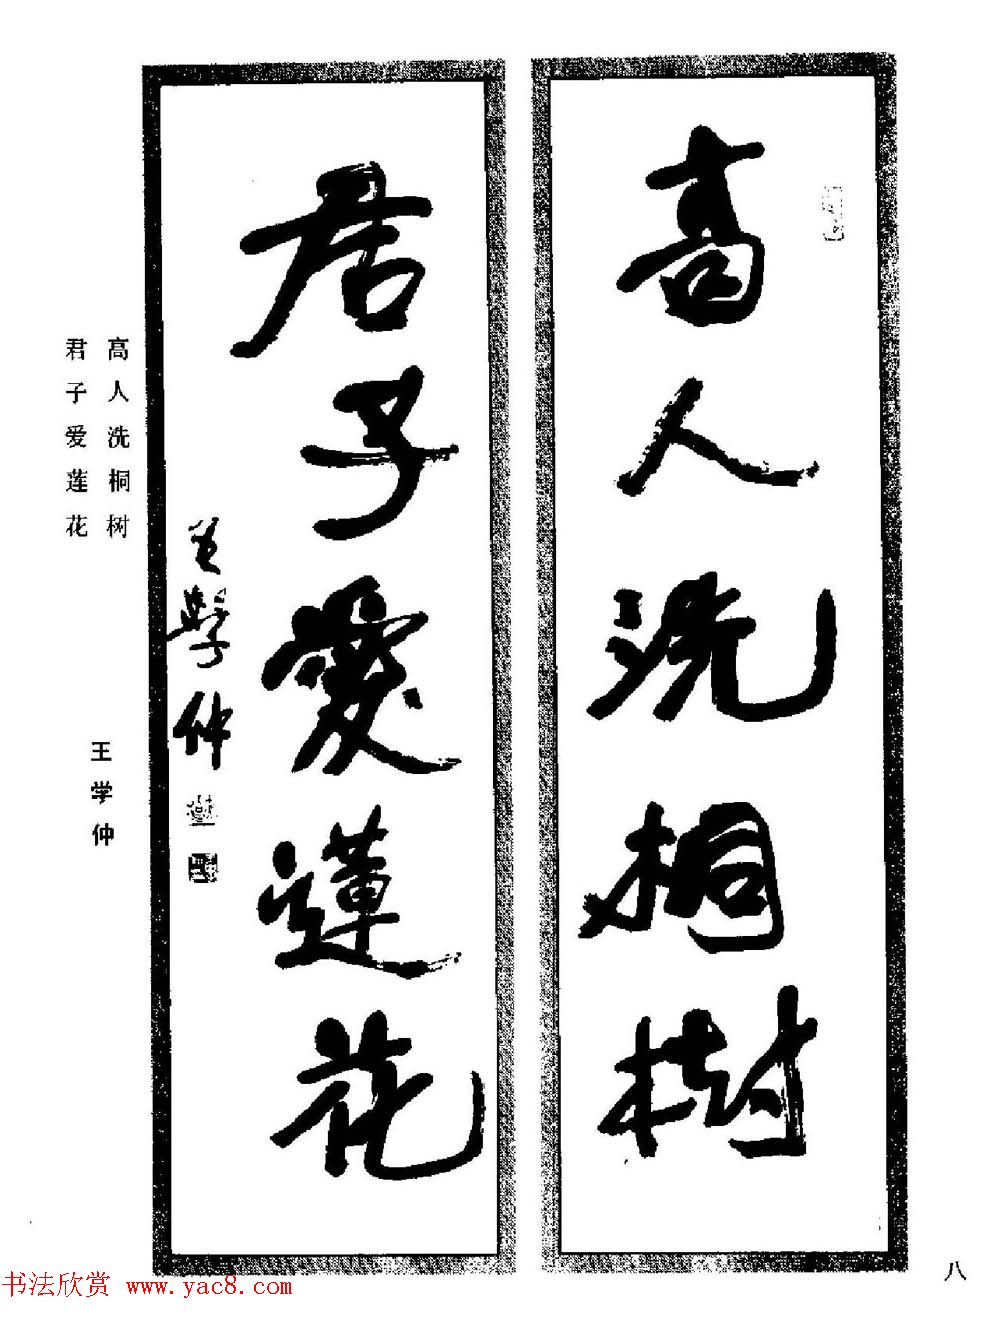 高人洗桐樹
君子愛蓮花
王學仲
高人洗桐树
君子爱莲花
王学仲
八
书法欣赏 www.yac8.com